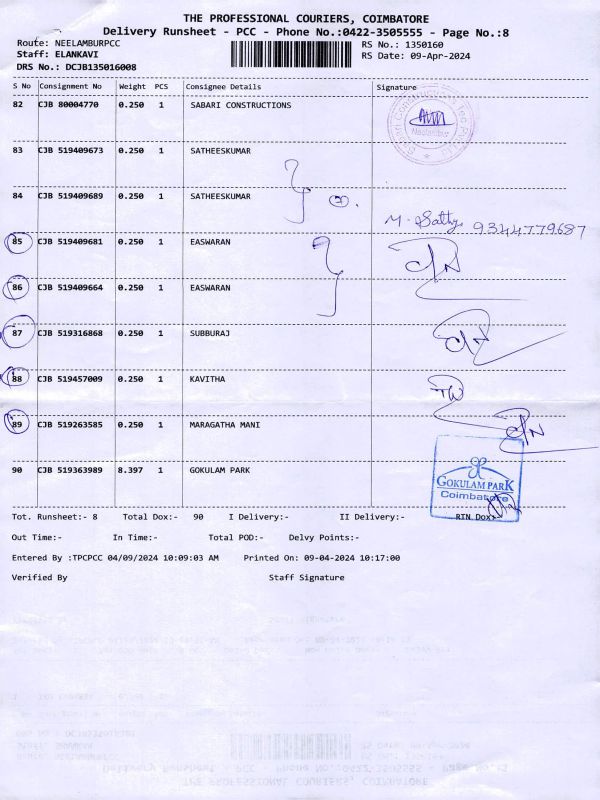 THE PROFESSIONAL COURIERS, COIMBATORE
Delivery Runsheet - PCC - Phone No.:0422-3505555 - Page No.:8
Route: NEELAMBURPCC RS No.: 1350160
Staff: ELANKAVI RS Date: 09-Apr-2024
DRS No.: DCJB135016008
S No Consignment No Weight PCS Consignee Details Signature
82 CJB 80004770 0.250 1 SABARI CONSTRUCTIONS
Neelambur
83 CJB 519409673 0.250 1 SATHEESKUMAR
84 CJB 519409689 0.250 1 SATHEESKUMAR
M. Sathy 9344779687
85 CJB 519409681 0.250 1 EASWARAN
86 CJB 519409664 0.250 1 EASWARAN
87 CJB 519316868 0.250 1 SUBBURAJ
88 CJB 519457009 0.250 1 KAVITHA
89 CJB 519263585 0.250 1 MARAGATHA MANI
90 CJB 519363989 8.397 1 GOKULAM PARK
GOKULAM PARK
Coimbatore
Tot. Runsheet:- 8 Total Dox:- 90 I Delivery:- II Delivery:- RTN Dox:-
Out Time:- In Time:- Total POD:- Delvy Points:-
Entered By :TPCPCC 04/09/2024 10:09:03 AM Printed On: 09-04-2024 10:17:00
Verified By Staff Signature